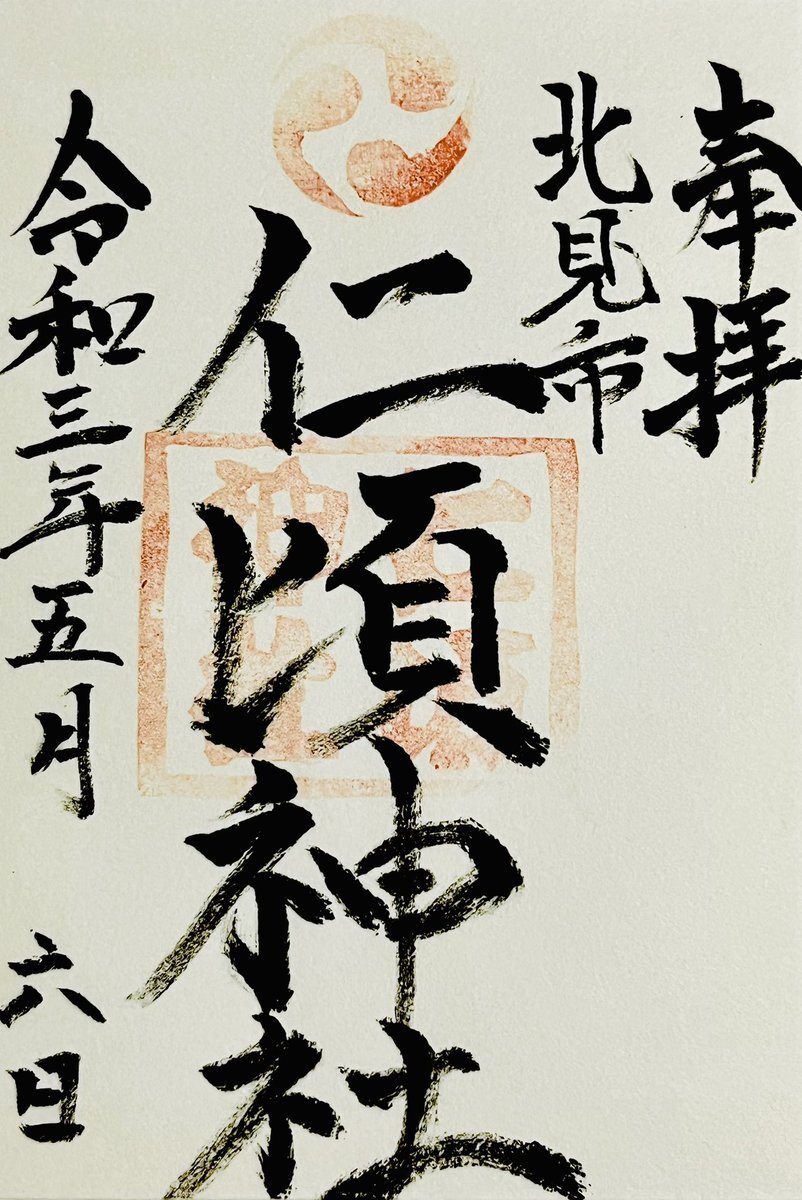 奉拝
北見市
仁頃神社
令和三年五月 六日